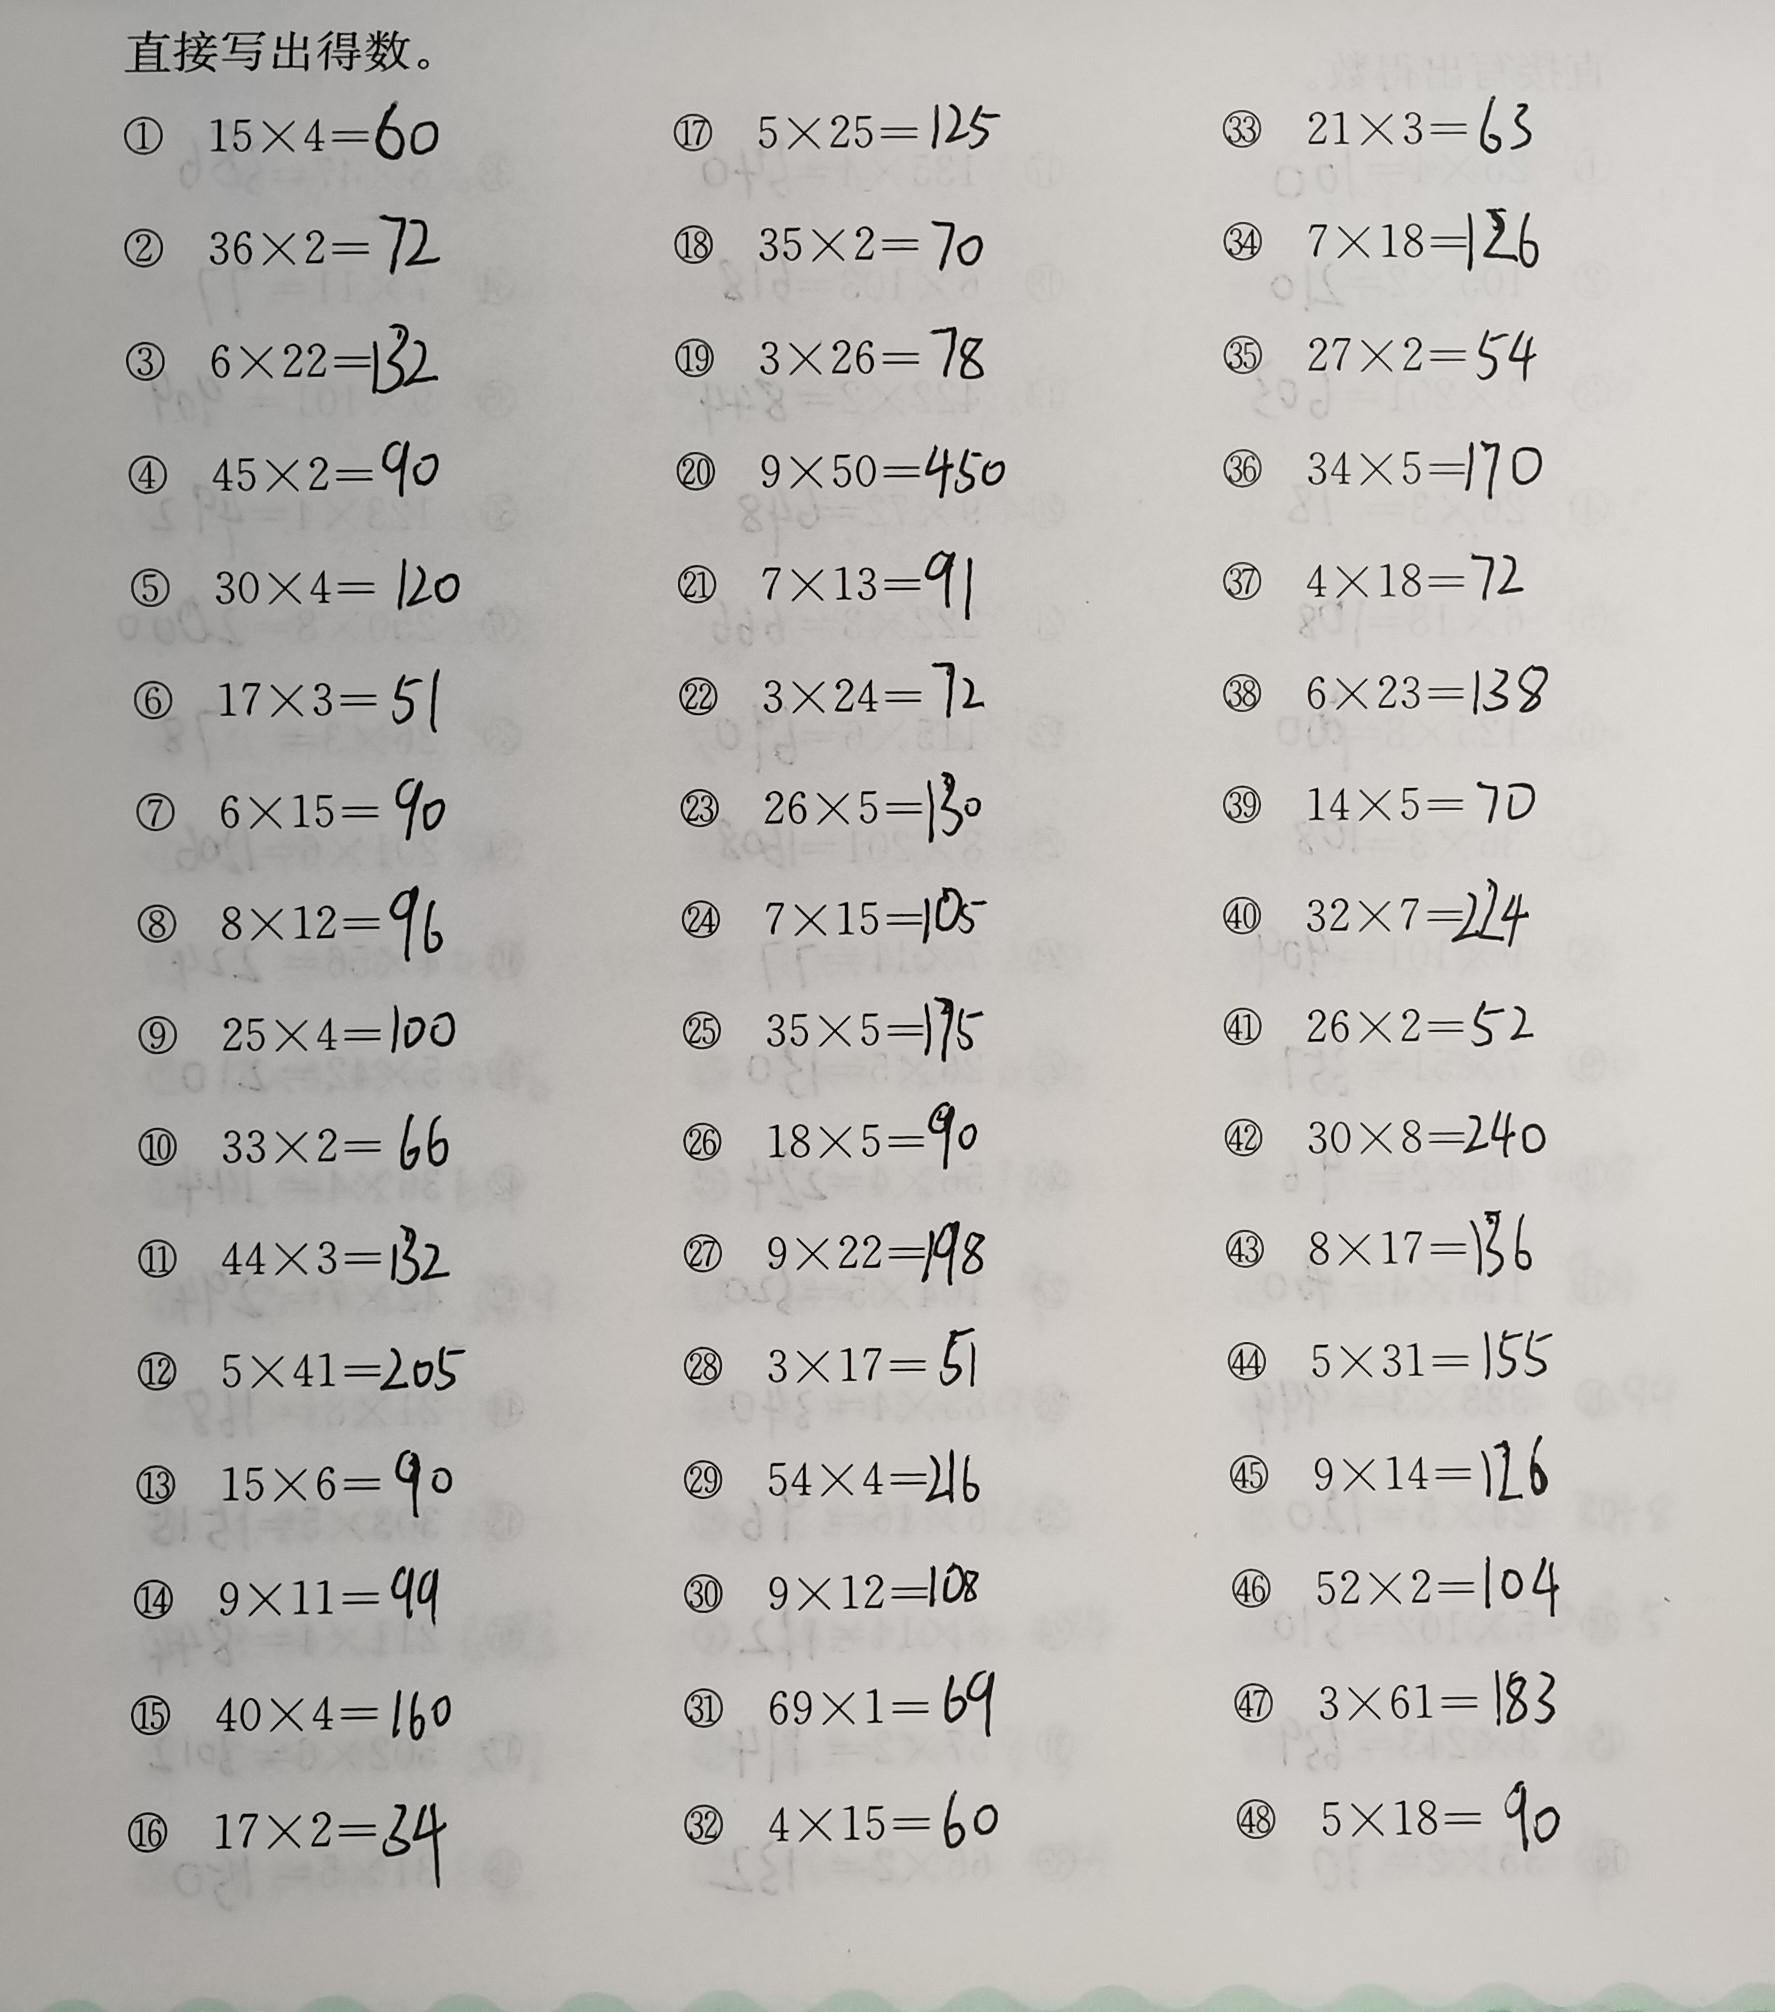 直接写出得数。
① 15×4=60
② 36×2=72
③ 6×22=132
④ 45×2=90
⑤ 30×4=120
⑥ 17×3=51
⑦ 6×15=90
⑧ 8×12=96
⑨ 25×4=100
⑩ 33×2=66
⑪ 44×3=132
⑫ 5×41=205
⑬ 15×6=90
⑭ 9×11=99
⑮ 40×4=160
⑯ 17×2=34
⑰ 5×25=125
⑱ 35×2=70
⑲ 3×26=78
⑳ 9×50=450
㉑ 7×13=91
㉒ 3×24=72
㉓ 26×5=130
㉔ 7×15=105
㉕ 35×5=175
㉖ 18×5=90
㉗ 9×22=198
㉘ 3×17=51
㉙ 54×4=216
㉚ 9×12=108
㉛ 69×1=69
㉜ 4×15=60
㉝ 21×3=63
㉞ 7×18=126
㉟ 27×2=54
㊱ 34×5=170
㊲ 4×18=72
㊳ 6×23=138
㊴ 14×5=70
㊵ 32×7=224
㊶ 26×2=52
㊷ 30×8=240
㊸ 8×17=136
㊹ 5×31=155
㊺ 9×14=126
㊻ 52×2=104
㊼ 3×61=183
㊽ 5×18=90